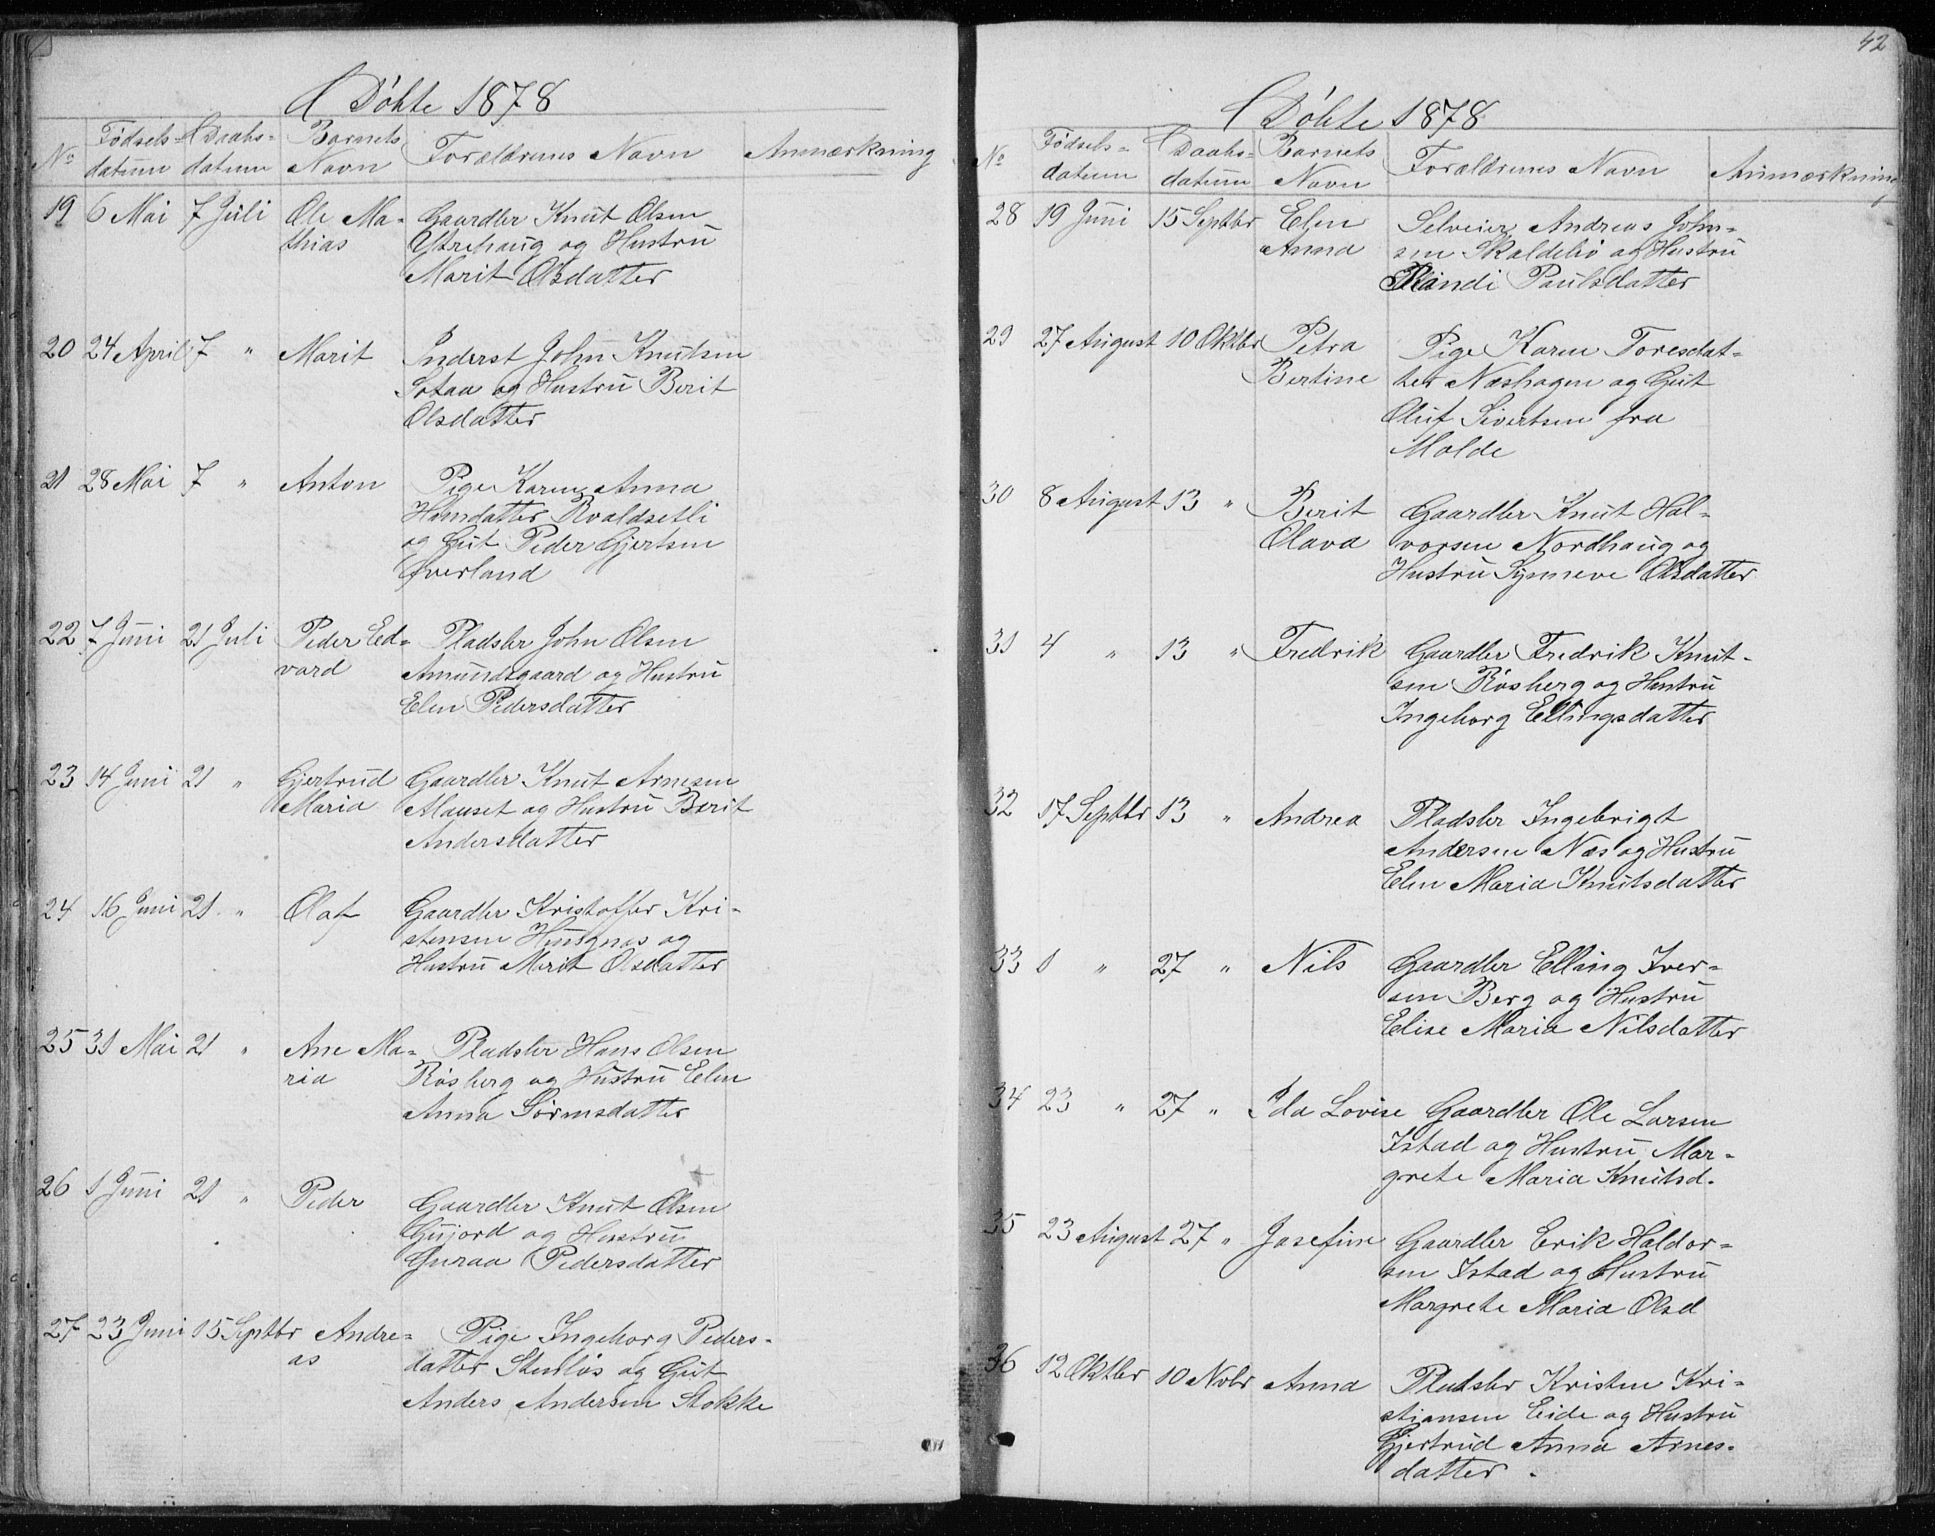 Døbte 1878
No Fødsels- Daabs- Barnets Forældrenes Navn Anmærkning
datum datum Navn
19 6 Mai 7 Juli Ole Ma- Gaardbr Knut Olsen
thias Ystehaug og Hustru
Marit Olsdatter
20 24 April 7 " Marit Inderst John Knutsen
Sotaa og Hustru Berit
Olsdatter
21 28 Mai 7 " Anton Pige Karen Anna
Hansdatter Roaldsetli
og Gut Peder Gjertsen
Øverland
22 7 Juni 21 Juli Peder Ed- Pladsbr John Olsen
vard Amundsgaard og Hustru
Elen Pedersdatter
23 14 Juni 21 " Gjertrud Gaardbr Knut Arnesen
Maria Mauset og Hustru Berit
Andersdatter
24 16 Juni 21 " Olaf Gaardbr Kristoffer Kri-
stensen Hungnes og
Hustru Marit Olsdatter
25 31 Mai 21 " Ane Ma- Pladsbr Hans Olsen
ria Røsberg og Hustru Elen
Anna Sørensdatter
26 1 Juni 21 " Peder Gaardbr Knut Olsen
Gujord og Hustru
Guraa Pedersdatter
27 23 Juni 15 Septbr Andre- Pige Ingeborg Peders-
as datter Stenløs og Gut
Anders Andersen Stokke
42
Døbte 1878
No Fødsels- Daabs- Barnets Forældrenes Navn Anmærkning
datum datum Navn
28 19 Juni 15 Septbr Elen Selveier Andreas John-
Anna sen Skaldebø og Hustru
Randi Paulsdatter
29 27 August 10 Oktbr Petra Pige Karen Toresdat-
Bertine ter Næshagen og Gut
Oluf Sivertsen fra
Molde
30 8 August 13 " Berit Gaardbr Knut Hal-
Olava vorsen Nordhaug og
Hustru Synneve Olsdatter
31 4 " 13 " Fredrik Gaardbr Fredrik Knut-
sen Røsberg og Hustru
Ingeborg Ellingsdatter
32 17 Septbr 13 " Andrea Pladsbr Ingebrigt
Andersen Næs og Hustru
Elen Maria Knutsdatter
33 1 " 27 " Nils Gaardbr Elling Iver-
sen Berg og Hustru
Elise Maria Nilsdatter
34 23 " 27 " Ida Lovise Gaardbr Ole Larsen
Istad og Hustru Mar-
grete Maria Knutsd.
35 23 August 27 " Josefine Gaardbr Erik Haldor-
sen Istad og Hustru
Margrete Maria Olsd
36 12 Oktbr 10 Novbr Anna Pladsbr Kristen Kri-
stiansen Eide og Hustru
Gjertrud Anna Arnes-
datter.